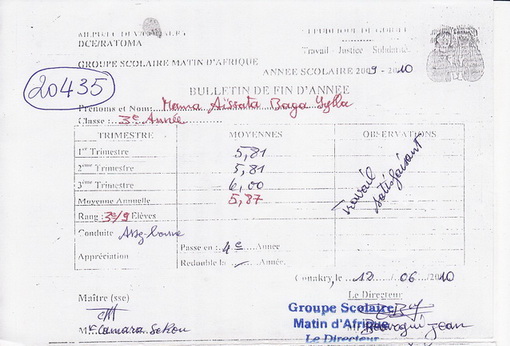 DCE/RATOMA
Travail - Justice - Solidarité
GROUPE SCOLAIRE MATIN D'AFRIQUE
ANNEE SCOLAIRE 2009 - 2010
20435
BULLETIN DE FIN D'ANNEE
Prénoms et Nom: Mama Aïssata Baga Sylla
Classe : 3e Année
TRIMESTRE MOYENNES OBSERVATIONS
1er Trimestre 5,81
2ème Trimestre 5,81
3ème Trimestre 6,00
Moyenne Annuelle 5,87
Travail satisfaisant
Rang : 3e/9 Elèves
Conduite Assez bonne
Appréciation
Passe en : 4e Année
Redouble la Année.
Conakry, le 12 06 /2010
Maître (sse)
Le Directeur
Groupe Scolaire
Matin d'Afrique
Le Directeur
Camara Sekou
Jean